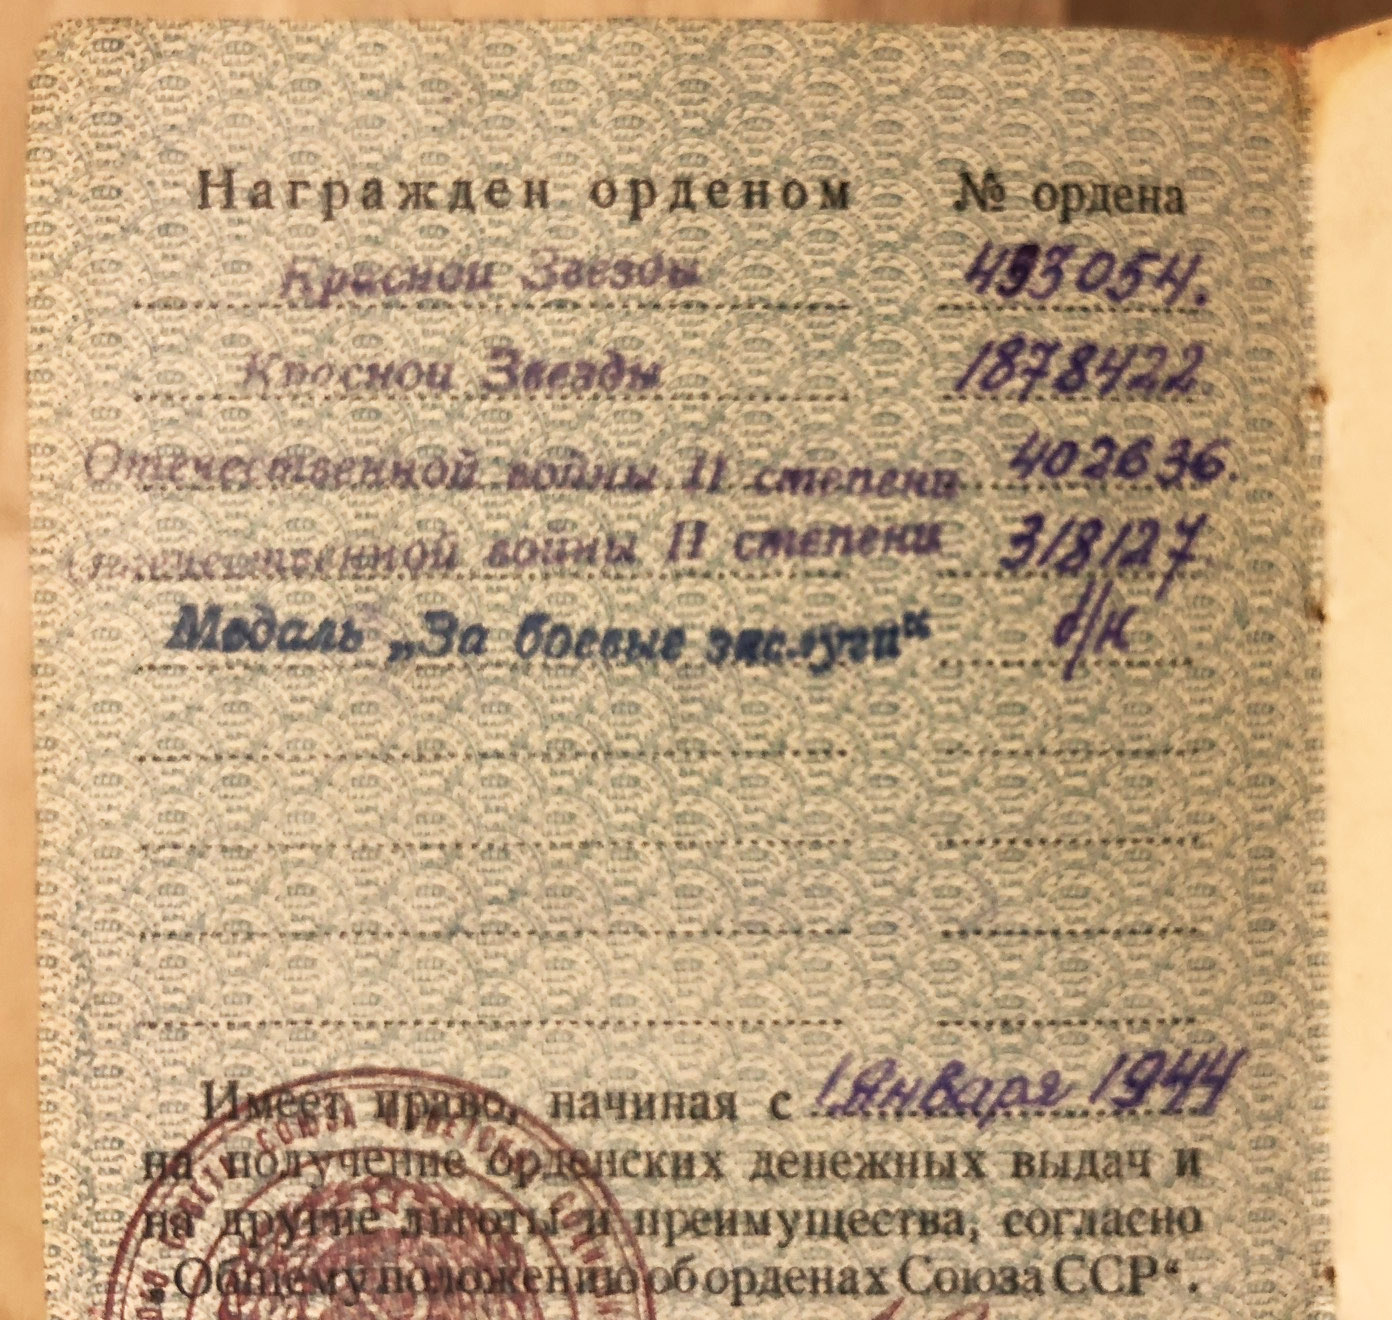 Награжден орденом № ордена
Красной Звезды 493054.
Красной Звезды 1878422
Отечественной войны II степени 402636.
Отечественной войны II степени 318127
Медаль „За боевые заслуги“ б/н
Имеет право, начиная с 1 Января 1944
на получение орденских денежных выдач и
на другие льготы и преимущества, согласно
„Общему положению об орденах Союза ССР“.